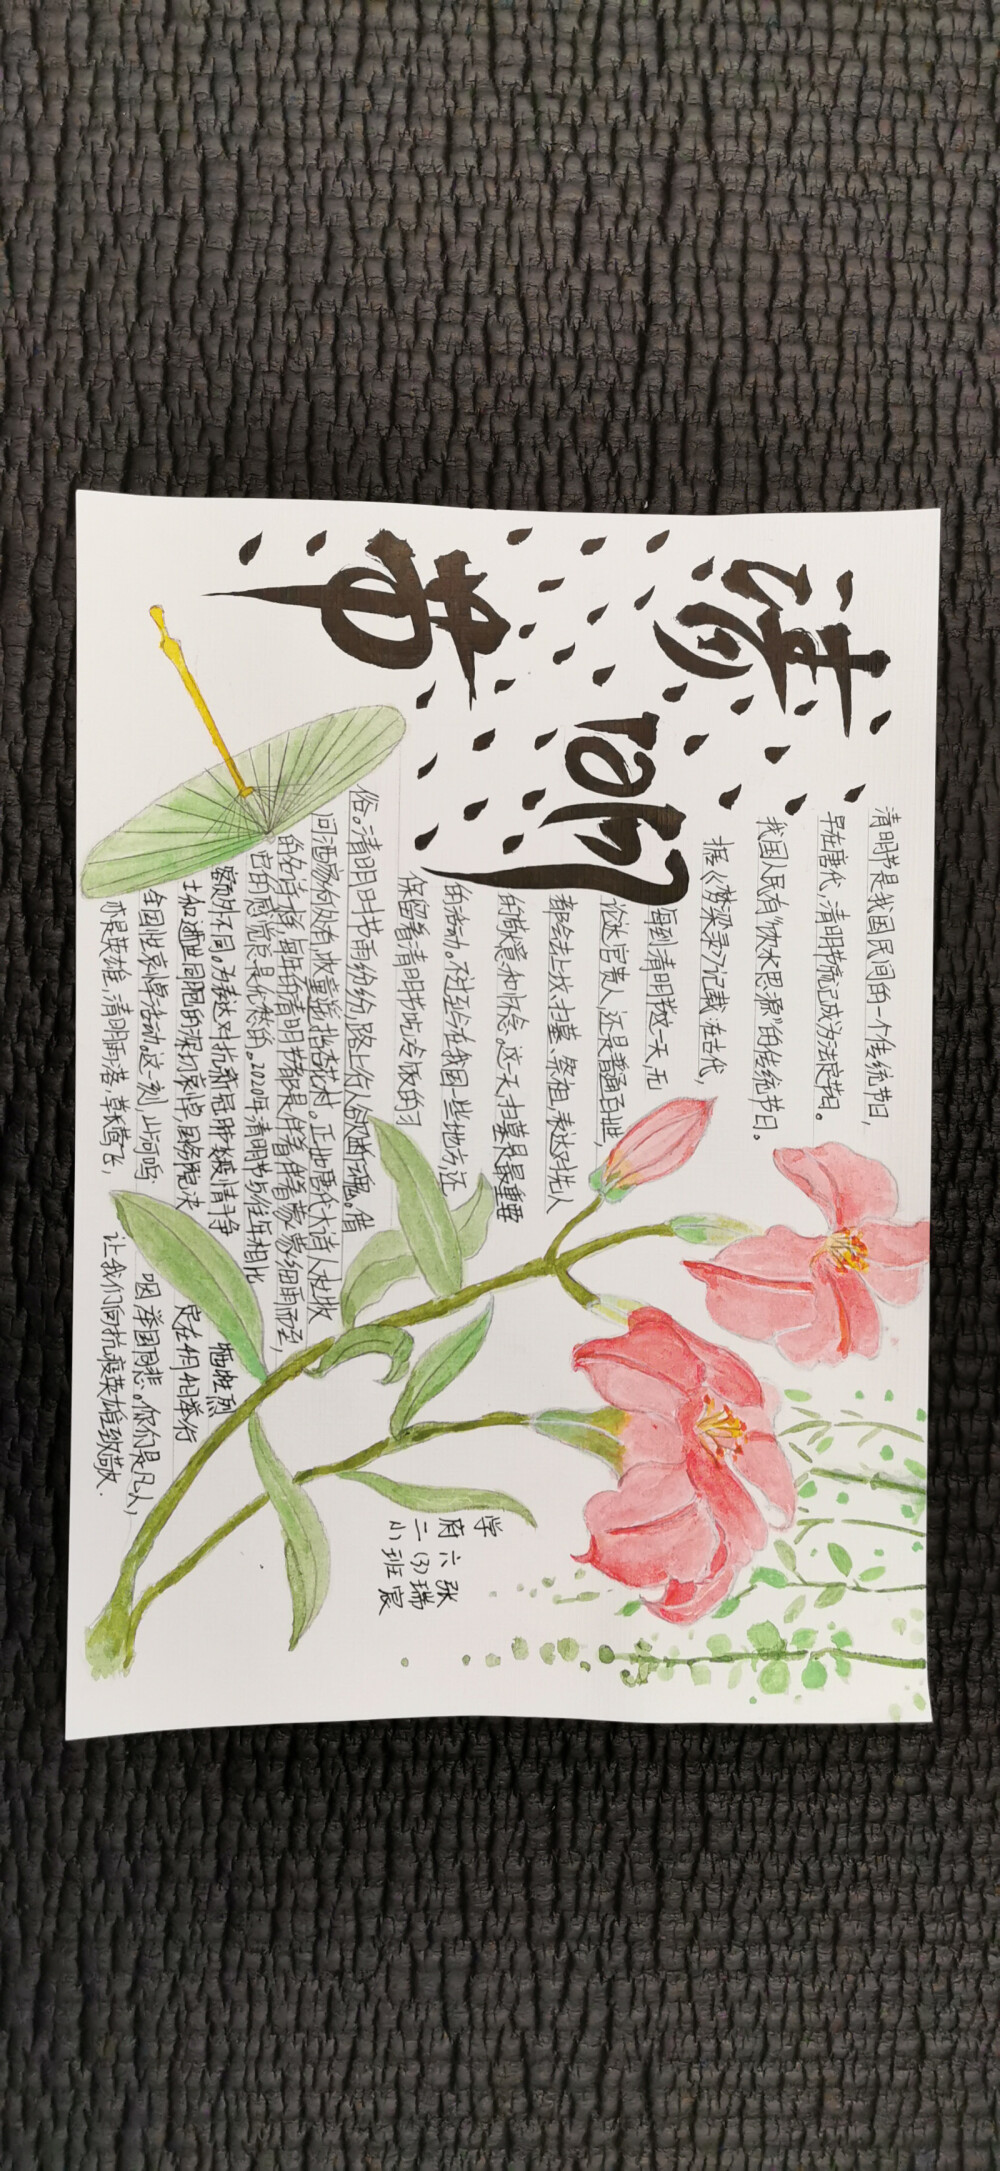 清明节
清明节是我国民间的一个传统节日，
早在唐代，清明节就已成为法定节日。
我国人民有“饮水思源”的传统节日。
据《梦梁录》记载：在古代，
每到清明节这一天，无
论达官贵人，还是普通百姓，
都会去上坟、扫墓、祭祖，表达对先人
的敬爱和怀念。这一天，扫墓是最重要
的活动。不过至今在我国一些地方，还
保留着清明节吃冷饭的习
俗。清明时节雨纷纷，路上行人欲断魂。借
问酒家何处有，牧童遥指杏花村。正如唐代大诗人杜牧
的名诗一样，每年的清明节都是伴着伴着蒙蒙细雨而至，
它的感觉总是忧愁的。2020年清明节与往年相比
额外不同。为表达对抗新冠肺炎疫情斗争牺牲烈
士和逝世同胞的深切哀悼，国务院决定在4月4日举行
全国性哀悼活动。这一刻，山河呜咽，举国同悲。你们是凡人，
亦是英雄，清明雨落，草长莺飞，让我们向抗疫英雄致敬.
学府二小
六(3)班
张瑞宸